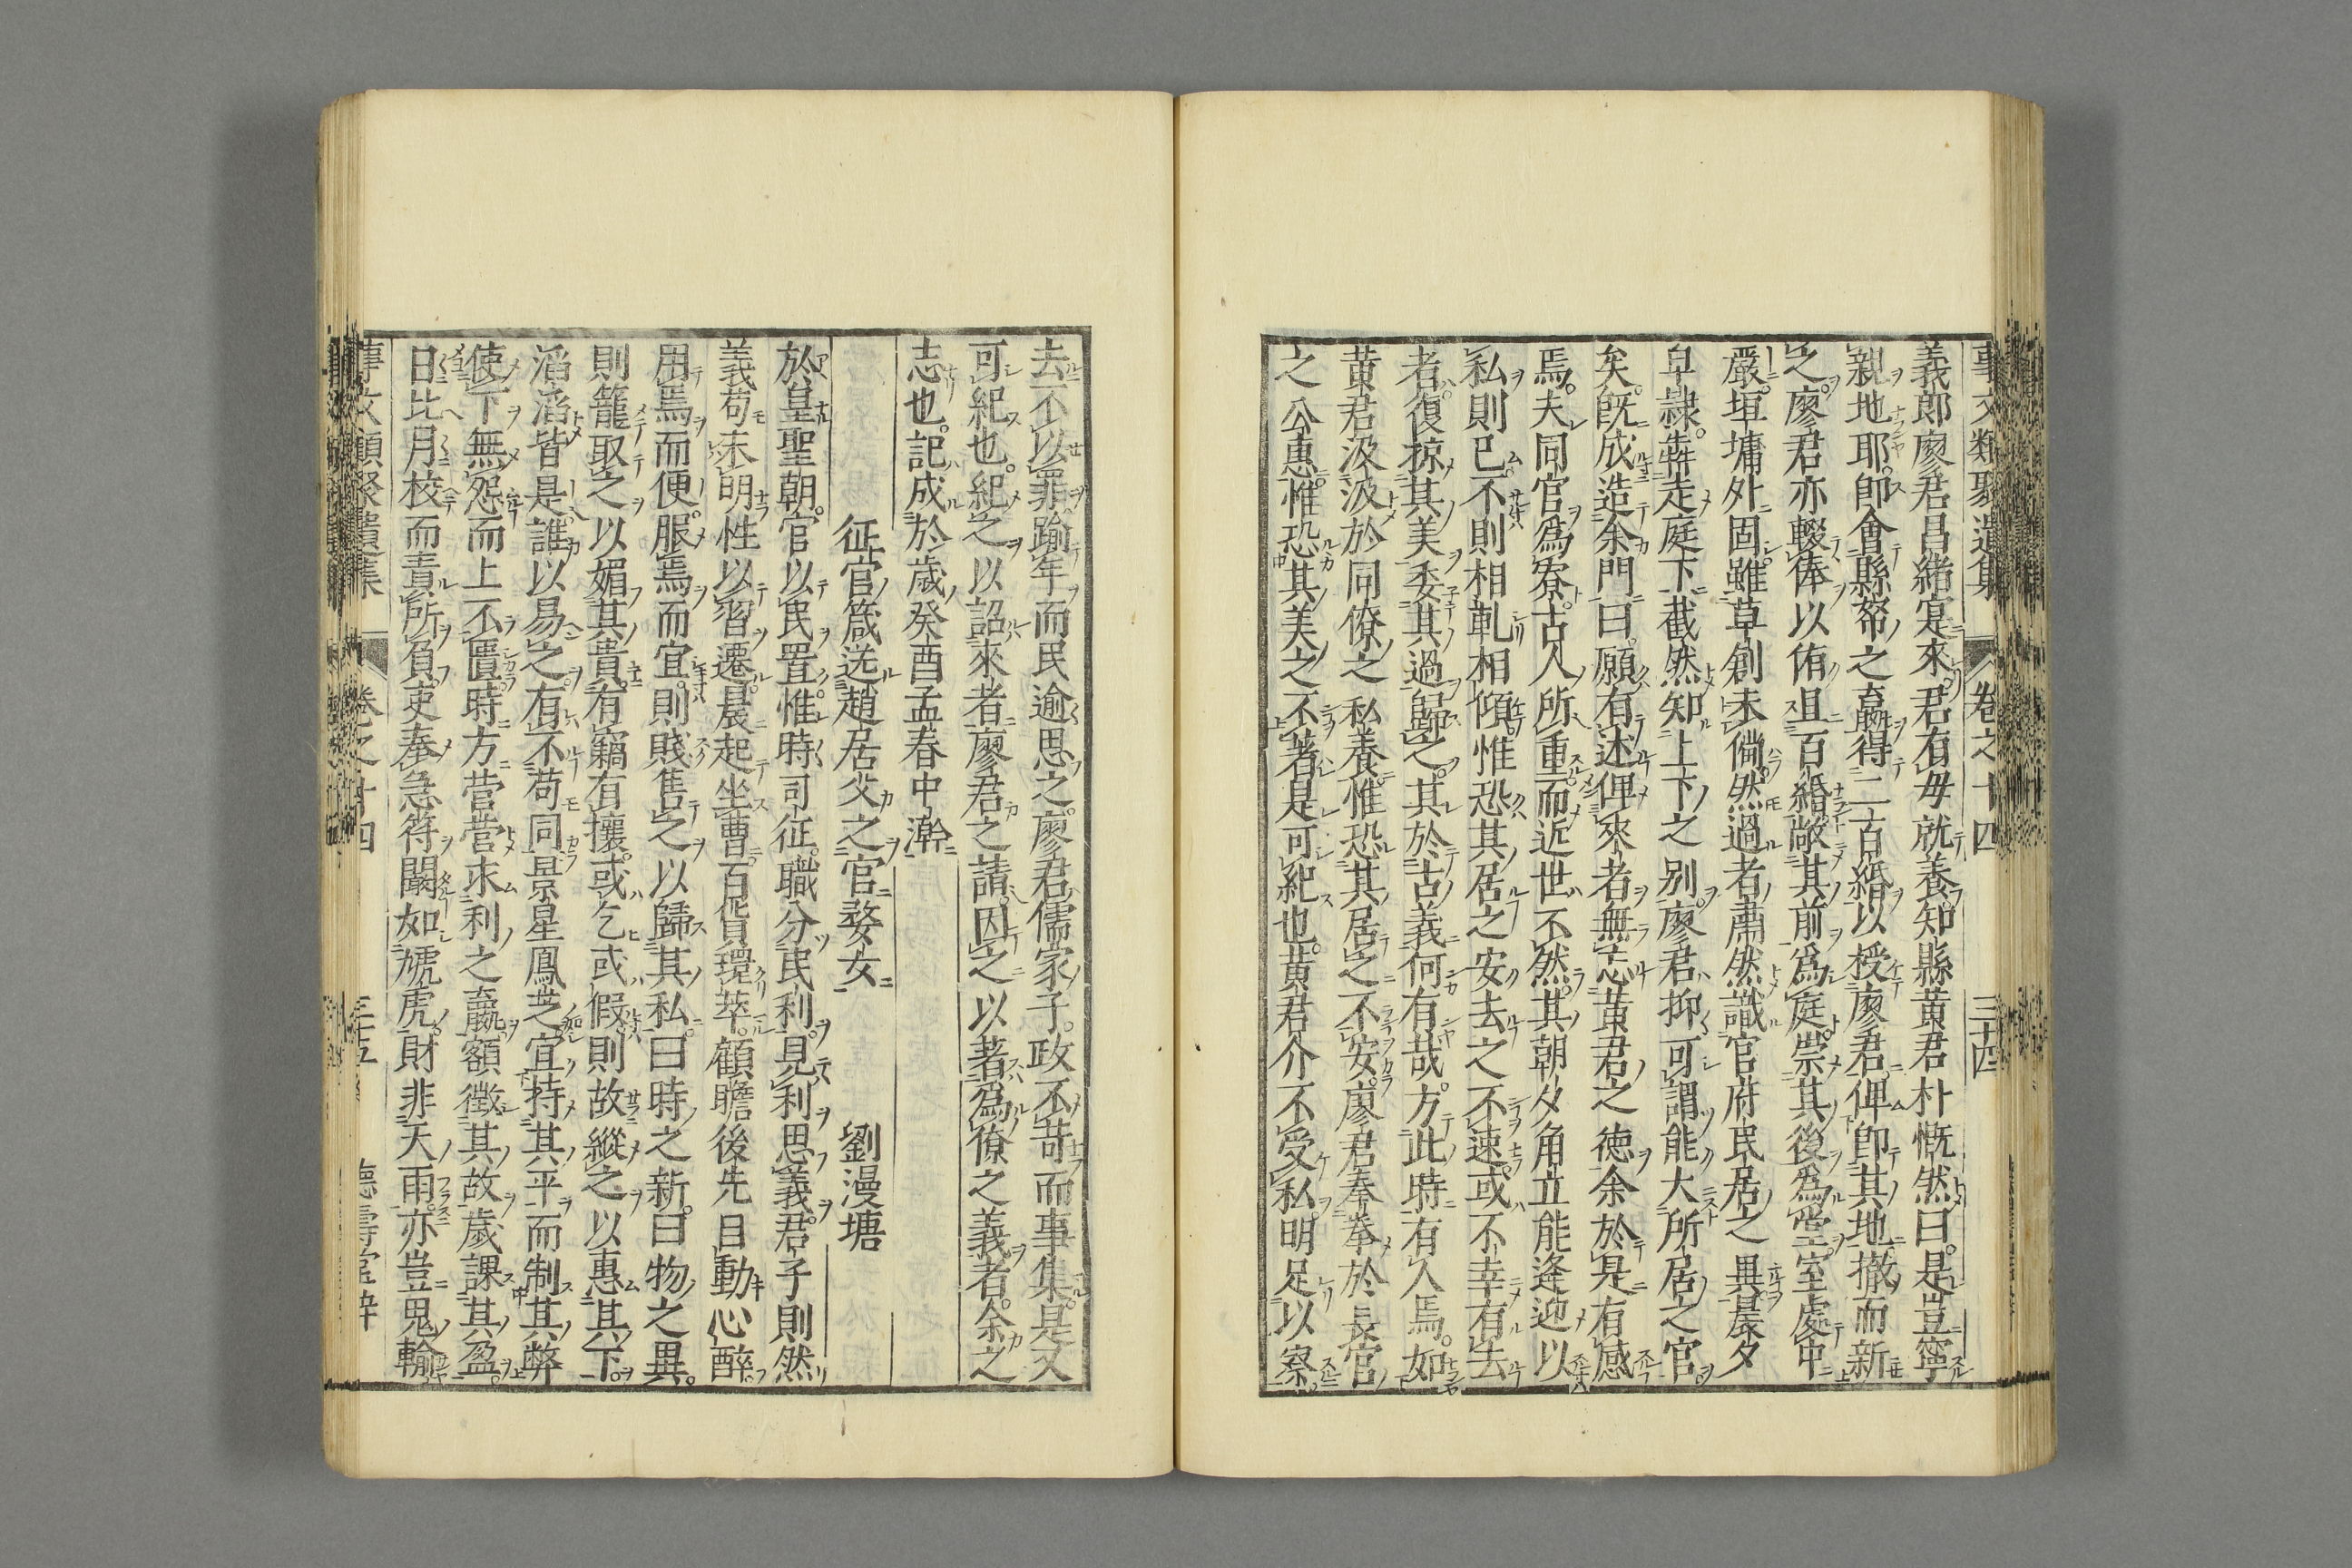 事文類聚遺集 卷之十四 三十四
義郎廖君昌緒寔來君有母就養知縣黄君朴慨然曰是豈寧
親地耶卽會縣帑之嬴得二百緡以授廖君俾卽其地撤而新
之廖君亦輟俸以侑且百緡敞其前爲庭崇其後爲堂室處中
嚴垣墉外固雖草創未備然過者肅然識官府民居之異晨夕
皁隷犇走庭下截然知上下之别廖君抑可謂能大所居之官
矣旣成造余門曰願有述俾來者無忘黄君之德余於是有感
焉夫同官爲寮古人所重而近世不然其朝夕角立能逢迎以
私則已不則相軋相傾惟恐其居之安去之不速或不幸有去
者復掠其美委其過歸之其於古義何有哉方此時有人焉如
黄君汲汲於同僚之私養惟恐其居之不安廖君拳拳於長官
之公惠惟恐其美之不著是可紀也黄君介不受私明足以察
去不以罪踰年而民逾思之廖君儒家子政不苛而事集是又
可紀也紀之以詔來者廖君之請因之以著爲僚之義者余之
志也記成於歲癸酉孟春中澣
征官箴送趙居父之官婺女 劉漫塘
於皇聖朝官以民置惟時司征職分民利見利思義君子則然
義苟未明性以習遷晨起坐曹百貨環萃顧瞻後先目動心醉
用焉而便服焉而宜則賤售之以歸其私曰時之新曰物之異
則籠取之以媚其貴有竊有攘或乞或假則故縱之以惠其下
滔滔皆是誰以易之有不苟同景星鳳芝宜持其平而制其弊
使下無怨而上不匱時方營營求利之嬴額徵其故歲課其盈
日比月校而責所負吏奉急符闞如虓虎財非天雨亦豈鬼輸
事文類聚遺集 卷之十四 三十五